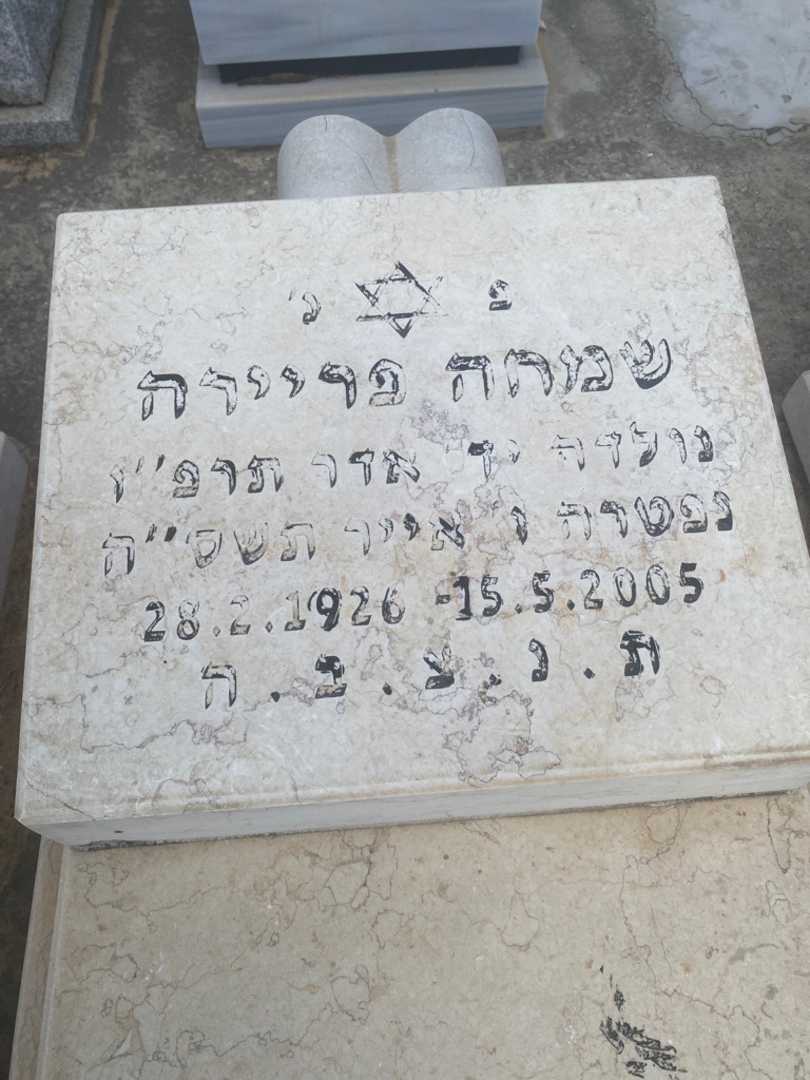 פ נ'
שמחה פריירה
נולדה יד' אדר תרפ"ו
נפטרה ו אייר תשס"ה
28.2.1926 -15.5.2005
ת.נ.צ.ב.ה